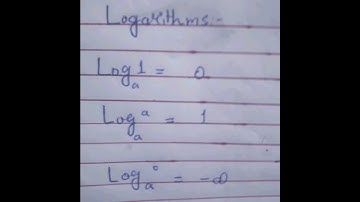 Logarithms :-
Logₐ1 = 0
Logₐa = 1
Logₐ0 = -∞